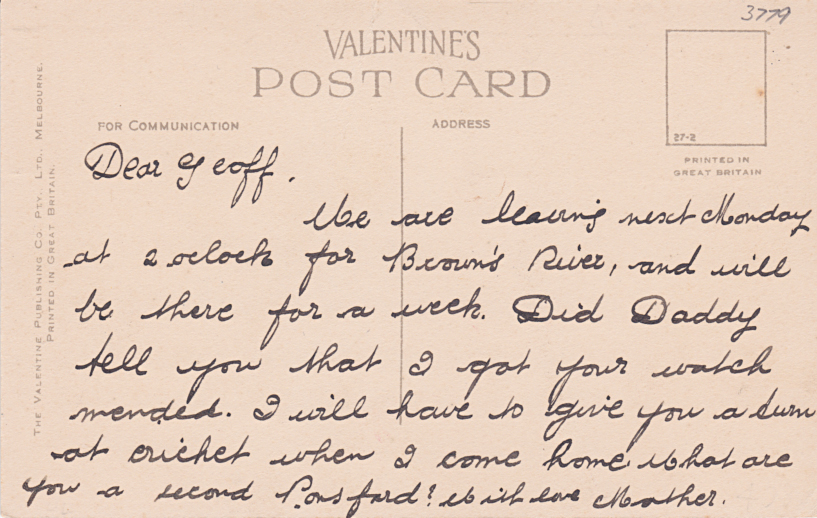 3779
VALENTINE'S
POST CARD
FOR COMMUNICATION
ADDRESS
27-2
PRINTED IN
GREAT BRITAIN
THE VALENTINE PUBLISHING CO. PTY., LTD., MELBOURNE.
PRINTED IN GREAT BRITAIN.
Dear Geoff.
We are leaving next Monday
at 2 oclock for Brown's River, and will
be there for a week. Did Daddy
tell you that I got your watch
mended. I will have to give you a turn
at cricket when I come home. What are
you a second Ponsford? With love Mother.